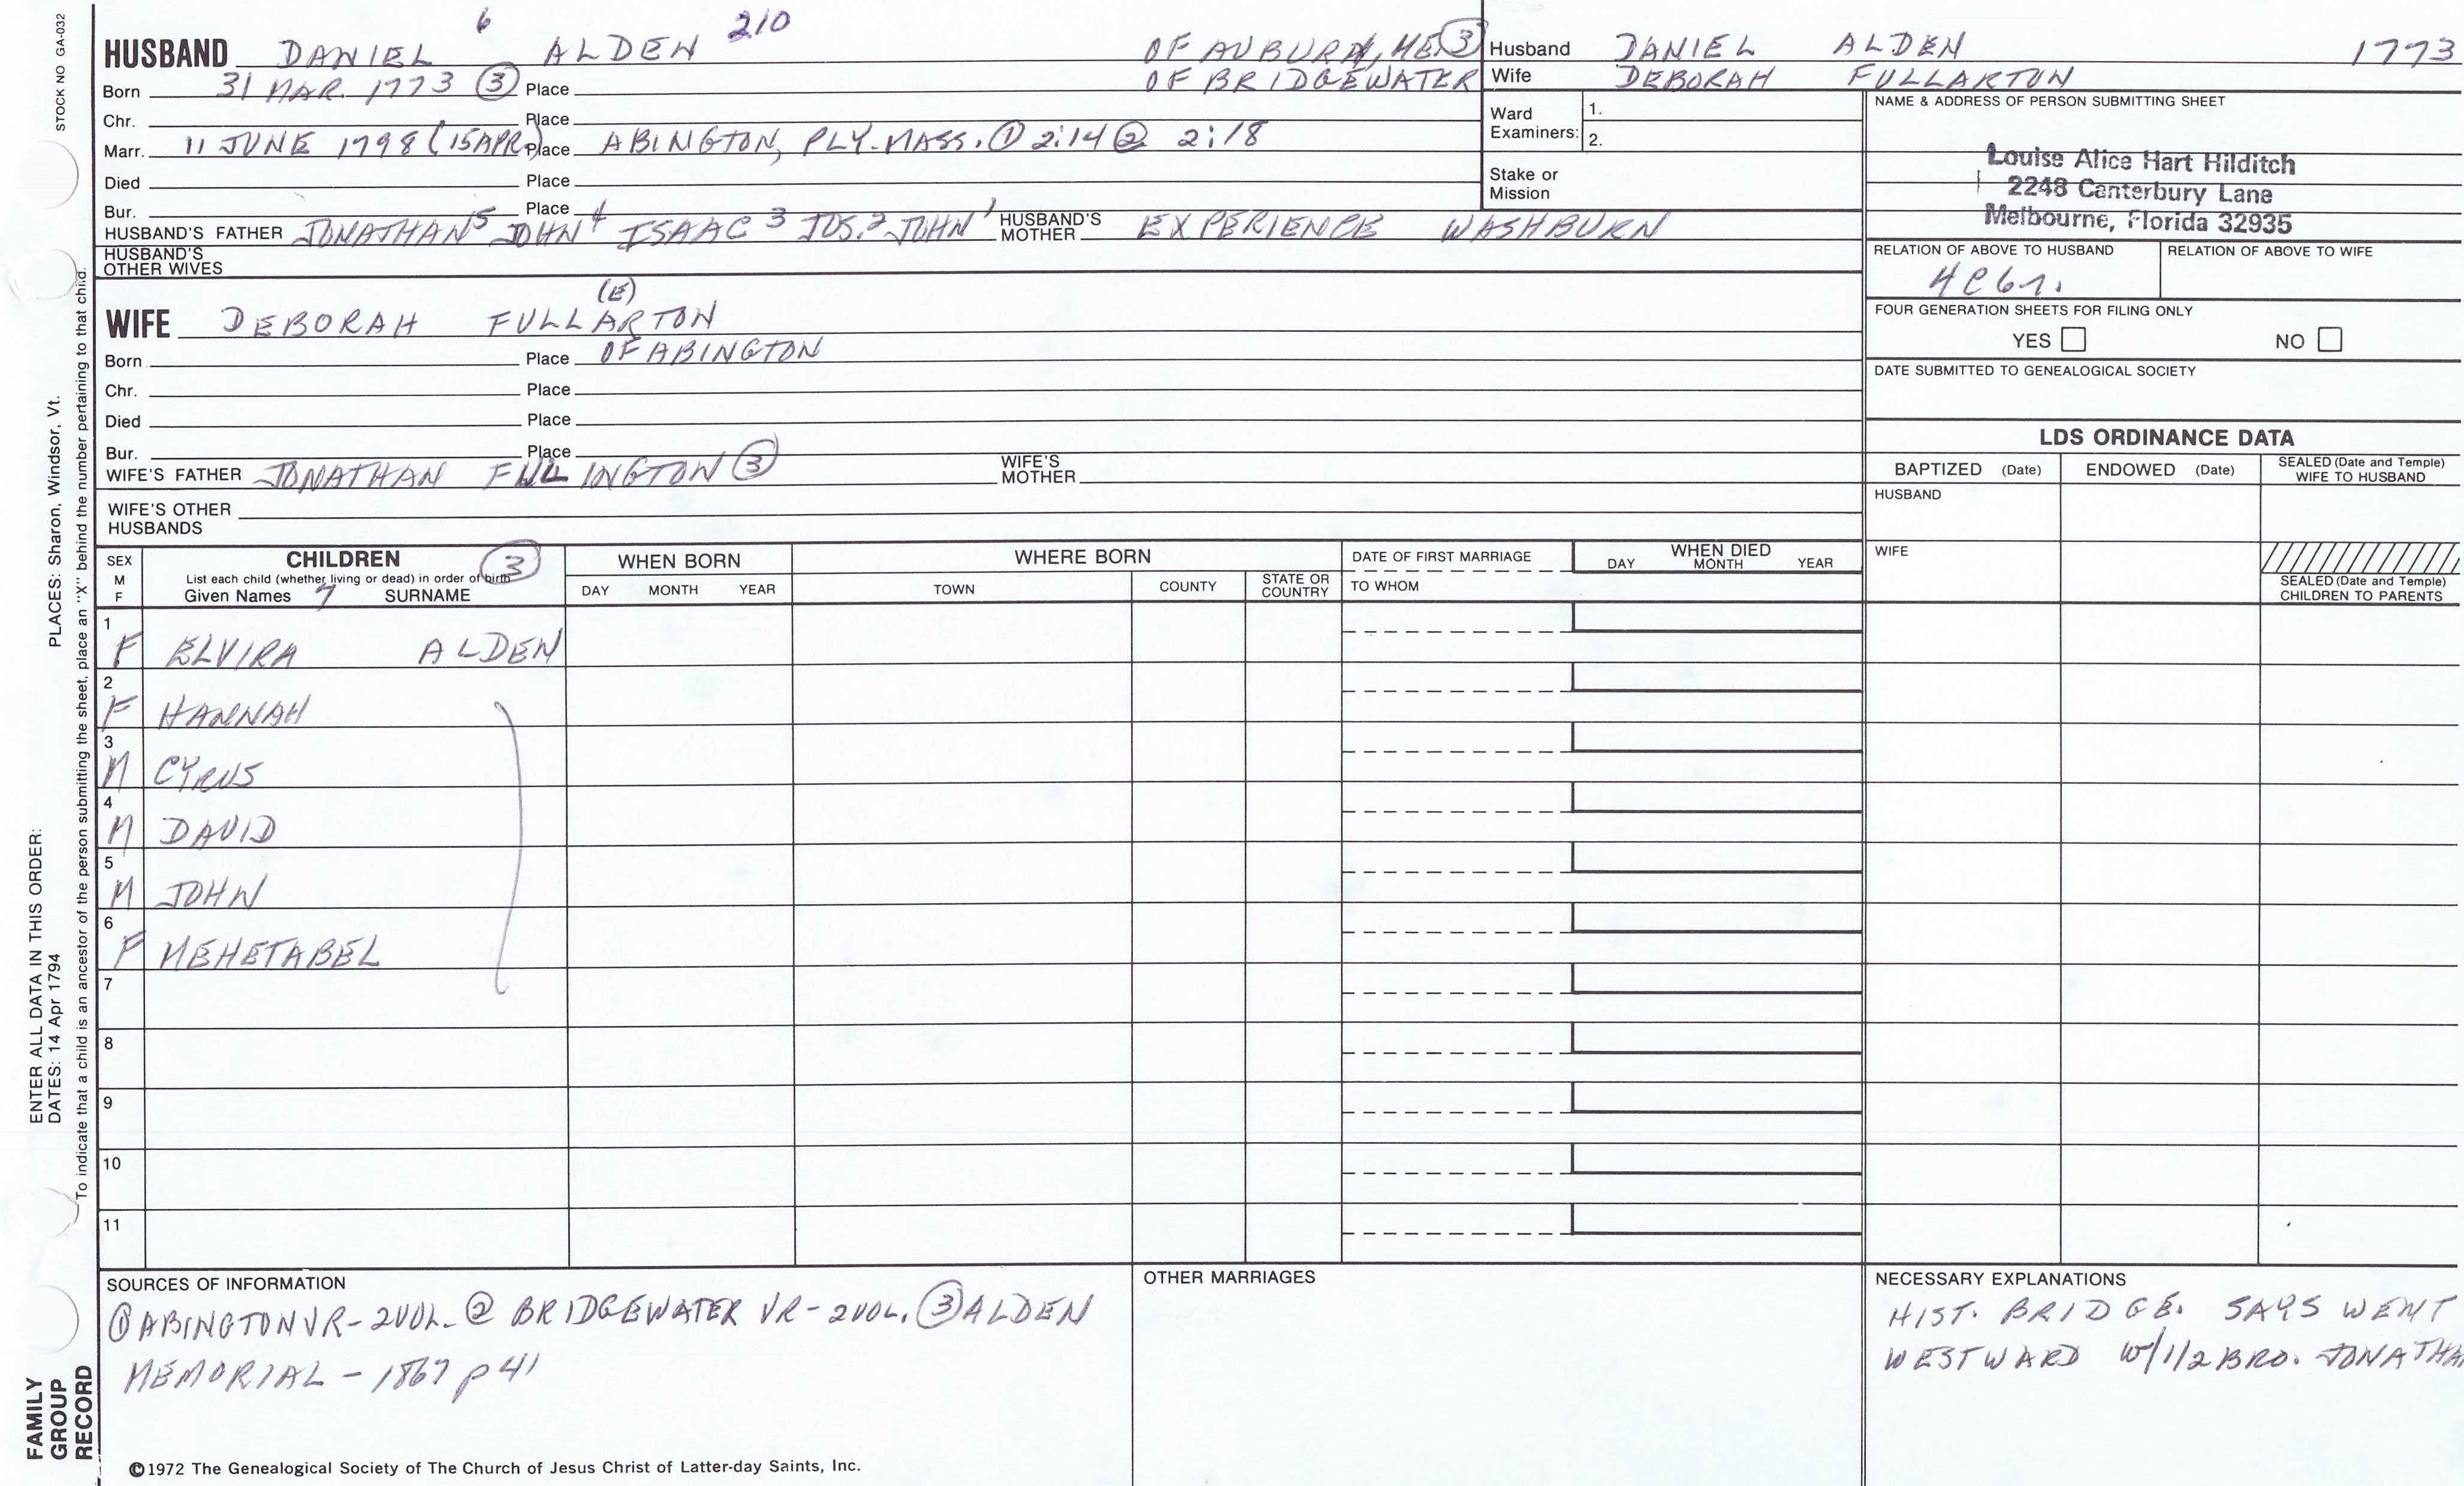 STOCK NO GA-032
6 210
HUSBAND DANIEL ALDEN OF AUBURN, ME. ③
Born 31 MAR. 1773 ③ Place OF BRIDGEWATER
Chr. Place
Marr. 11 JUNE 1798 (15APR) Place ABINGTON, PLY. MASS. ① 2:14 ② 2:18
Died Place
Bur. Place
HUSBAND'S FATHER JONATHAN⁵ JOHN⁴ ISAAC³ JOS.² JOHN¹ HUSBAND'S MOTHER EXPERIENCE WASHBURN
HUSBAND'S OTHER WIVES
(E)
WIFE DEBORAH FULLARTON
Born Place OF ABINGTON
Chr. Place
Died Place
Bur. Place
WIFE'S FATHER JONATHAN FULLINGTON ③ WIFE'S MOTHER
WIFE'S OTHER HUSBANDS
Husband DANIEL ALDEN 1773
Wife DEBORAH FULLARTON
Ward Examiners: 1.
2.
Stake or Mission
NAME & ADDRESS OF PERSON SUBMITTING SHEET
Louise Alice Hart Hilditch
2248 Canterbury Lane
Melbourne, Florida 32935
RELATION OF ABOVE TO HUSBAND RELATION OF ABOVE TO WIFE
4C6r.
FOUR GENERATION SHEETS FOR FILING ONLY
YES NO
DATE SUBMITTED TO GENEALOGICAL SOCIETY
LDS ORDINANCE DATA
BAPTIZED (Date) ENDOWED (Date) SEALED (Date and Temple) WIFE TO HUSBAND
HUSBAND
WIFE
SEALED (Date and Temple) CHILDREN TO PARENTS
SEX M F CHILDREN ③ WHEN BORN WHERE BORN DATE OF FIRST MARRIAGE WHEN DIED
List each child (whether living or dead) in order of birth
Given Names 7 SURNAME DAY MONTH YEAR TOWN COUNTY STATE OR COUNTRY TO WHOM DAY MONTH YEAR
1 F ELVIRA ALDEN
2 F HANNAH
3 M CYRUS
4 M DAVID
5 M JOHN
6 F MEHETABEL
7
8
9
10
11
SOURCES OF INFORMATION
① ABINGTON VR - 2VOL. ② BRIDGEWATER VR - 2VOL. ③ ALDEN
MEMORIAL - 1867 p 41
OTHER MARRIAGES
NECESSARY EXPLANATIONS
HIST. BRIDGE. SAYS WENT
WESTWARD W/ 1/2 BRO. JONATHA
©1972 The Genealogical Society of The Church of Jesus Christ of Latter-day Saints, Inc.
ENTER ALL DATA IN THIS ORDER:
DATES: 14 Apr 1794 PLACES: Sharon, Windsor, Vt.
To indicate that a child is an ancestor of the person submitting the sheet, place an "X" behind the number pertaining to that child.
FAMILY
GROUP
RECORD